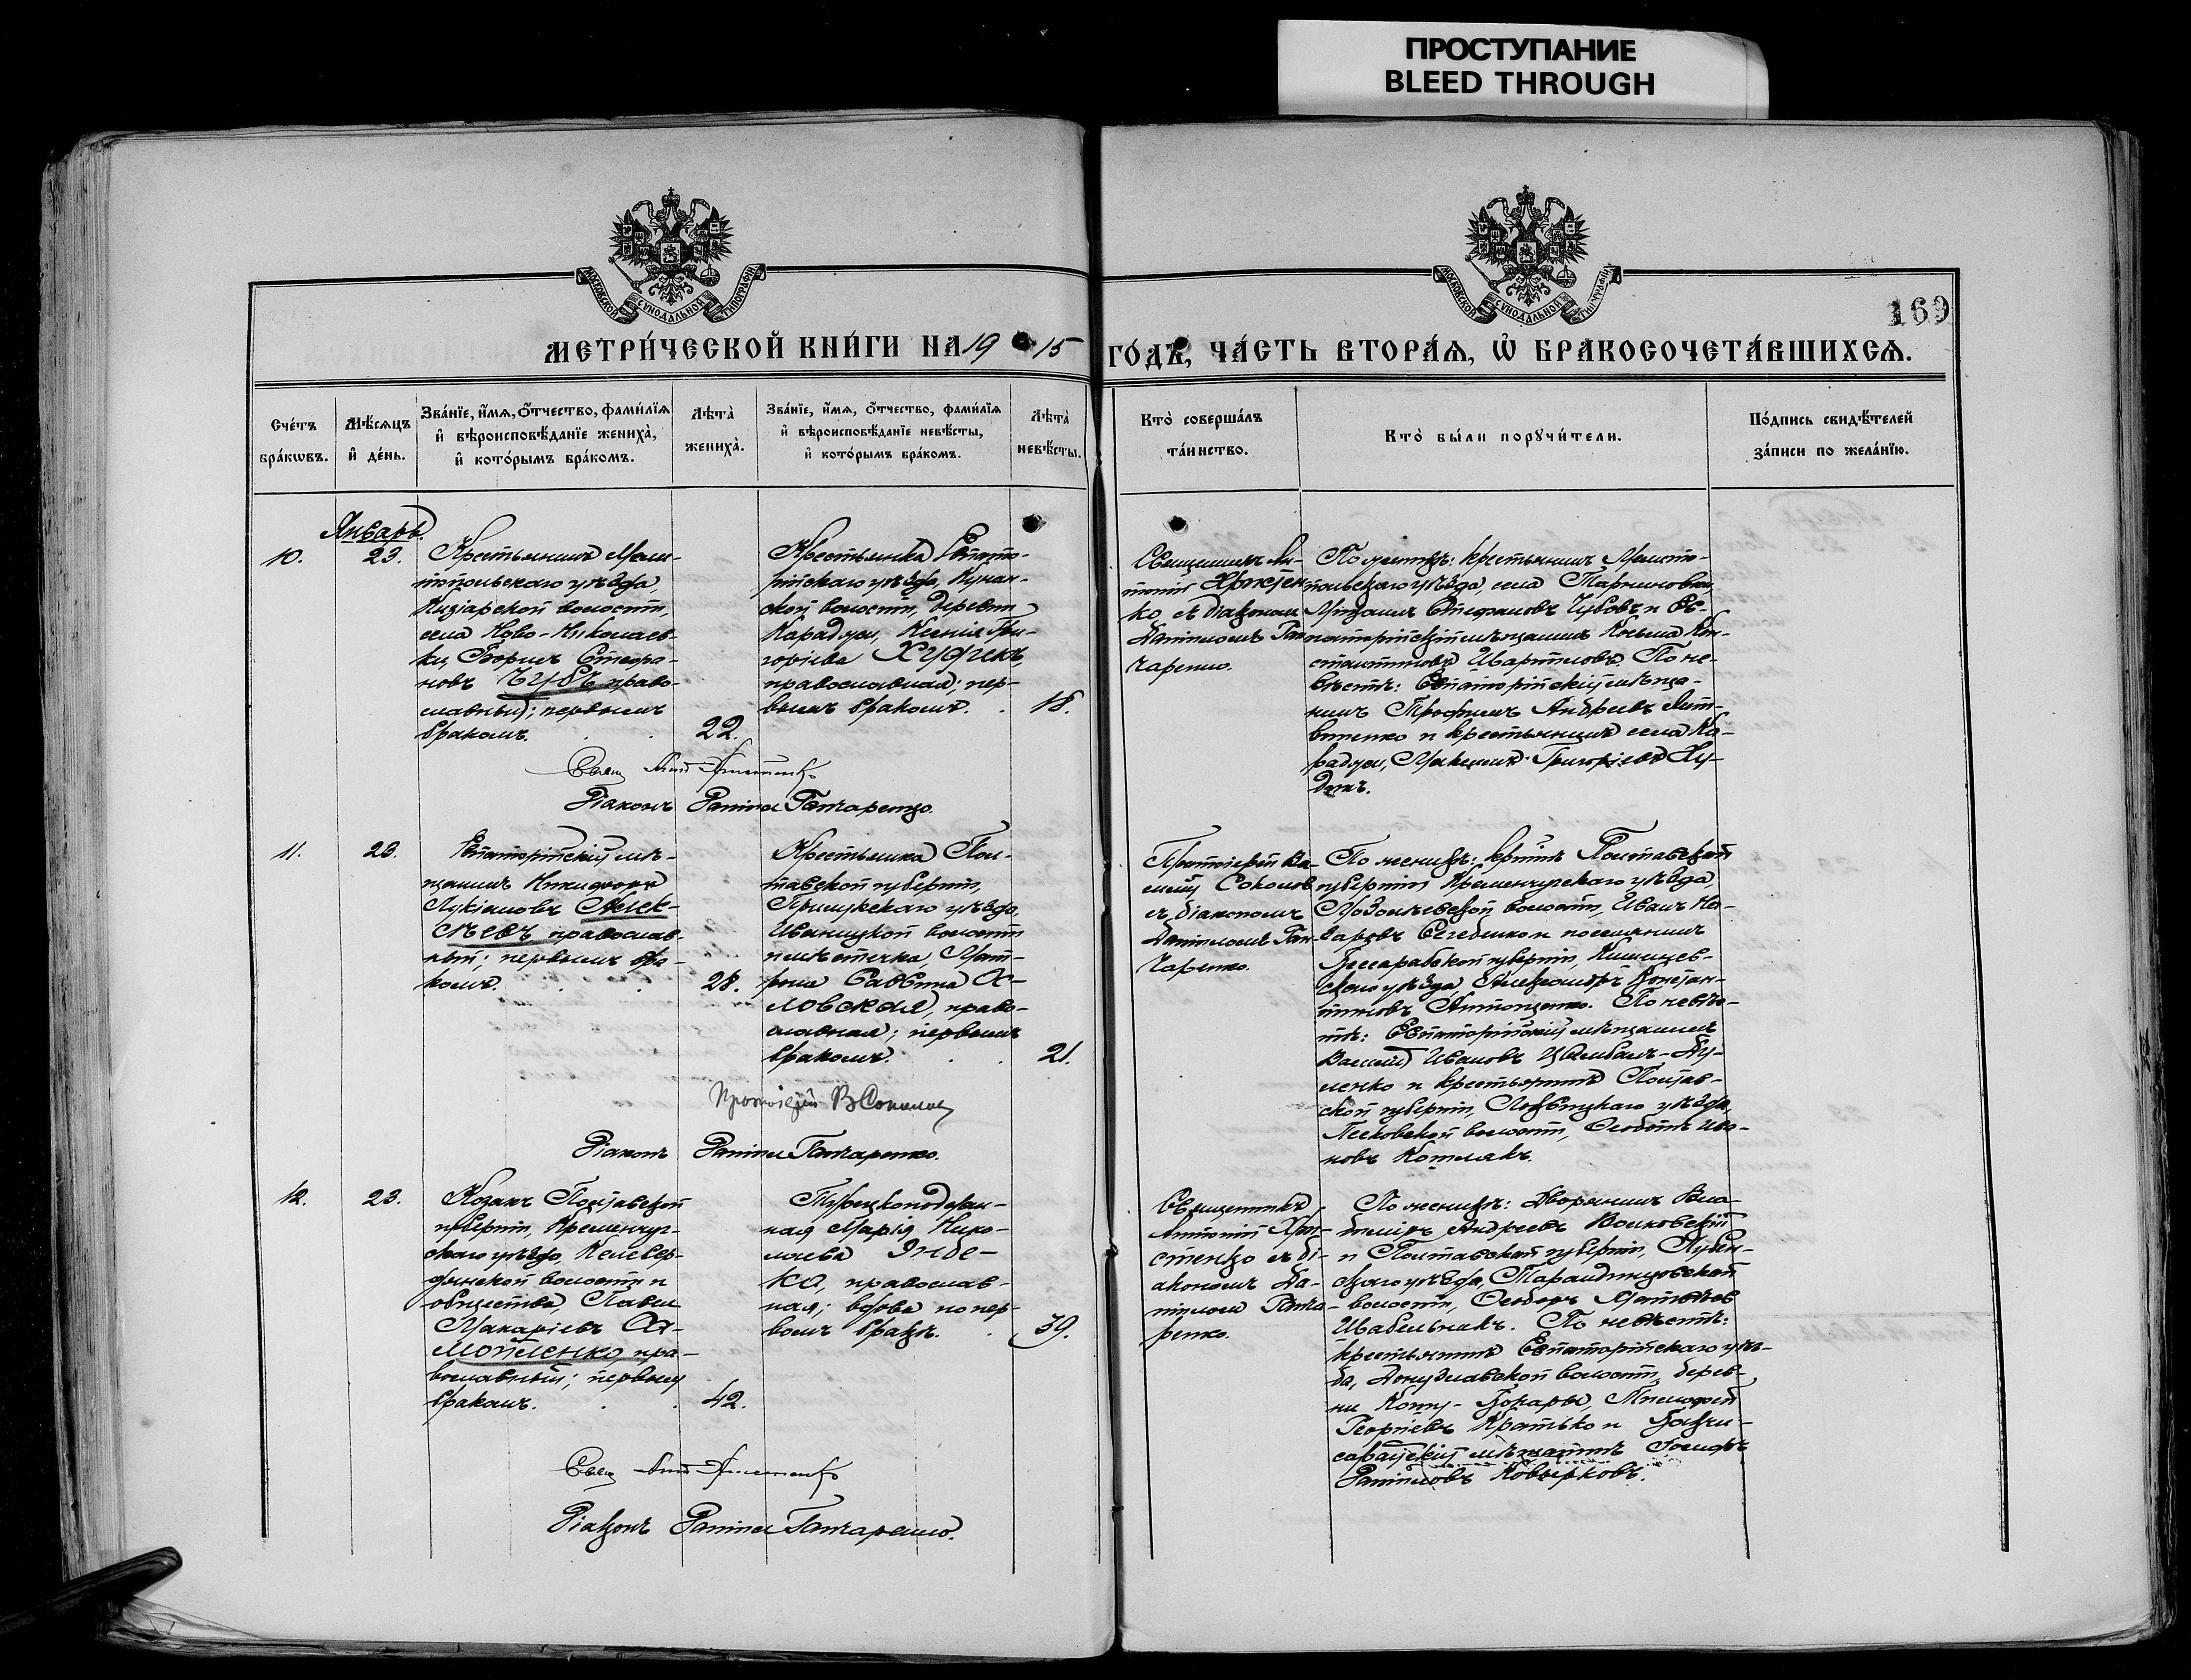 ПРОСТУПАНИЕ
BLEED THROUGH
МОСКОВСКОЙ СѴНОДАЛЬНОЙ ТИПОГРАФІИ
МОСКОВСКОЙ СѴНОДАЛЬНОЙ ТИПОГРАФІИ
169
МЕТРИ́ЧЕСКОЙ КНИ́ГИ НА 1915
ГО́ДЪ, ЧА́СТЬ ВТОРА́Ѧ, Ѿ БРАКОСОЧЕТА́ВШИХСѦ.
Сче́тъ
бра́кѡвъ.
Мѣ́сяцъ
и де́нь.
Зва́нїе, и́мѧ, о́тчество, фами́лїѧ
и вѣроисповѣ́данїе жениха̀,
и кото́рымъ бра́комъ.
Лѣта̀
жениха̀.
Зва́нїе, и́мѧ, о́тчество, фами́лїѧ
и вѣроисповѣ́данїе невѣ́сты,
и кото́рымъ бра́комъ.
Лѣта̀
невѣ́сты.
Кто̀ соверша́лъ
та́инство.
Кто̀ бы́ли порꙋчи́тели.
По́дпись свидѣ́телей
за́писи по жела́нїю.
Январь.
10.
23.
Крестьянинъ Мели-
топольскаго уѣзда,
волости,
села Ново-Николаев-
ки, Стефа-
новъ Чубъ, право-
славный; первымъ
бракомъ.
22.
Крестьянка Евпато-
рійскаго уѣзда, Кунан-
ской волости, деревни
Караджи, Ксенія Гри-
горіева Худикъ,
православная; пер-
вымъ бракомъ.
18.
Священникъ Ан-
тоній Христен
ко съ діакономъ
Даніиломъ Ган
чаренко.
По женихѣ: крестьянинъ Мелито-
польскаго уѣзда, села
Стефановъ Чубовъ и Ев-
паторійскій мѣщанинъ Косьма Кон-
стантиновъ По не-
вѣстѣ: Евпаторійскій мѣща-
нинъ Трофимъ Андреевъ Лит-
виненко и крестьянинъ села Ка-
раджи, Григоріевъ Ху-
дикъ.
Діаконъ Даніилъ Ганчаренко.
11.
23.
Евпаторійскій мѣ-
щанинъ Никифоръ
Лукіановъ Алек-
сѣевъ, православ-
ный; первымъ бра-
комъ.
28.
Крестьянка Пол-
тавской губерніи,
Прилукскаго уѣзда,
Иваницкой волости
и мѣстечка, Мат-
рона Саввина Ха-
ловская, право-
славная; первымъ
бракомъ.
21.
Протоіерей Ва-
силій Соколов
съ діакономъ
Даніиломъ Ган-
чаренко.
По женихѣ: кр-нъ Полтавской
губерніи Кременчугскаго уѣзда,
волости, Иванъ На-
заровъ и поселянинъ
Бессарабской губерніи, Кишинев-
скаго уѣзда, Александръ Констан-
тиновъ Антощенко. По невѣс-
тѣ: Евпаторійскій мѣщанинъ
Василій Ивановъ Цимбалъ-Ку-
ленко и крестьянинъ Полтав-
ской губерніи, Лохвицкаго уѣзда,
Песковской волости, Ива-
новъ Котлякъ.
Протоіерей В Соколов
Діаконъ Даніилъ Ганчаренко.
12.
23.
Козакъ Полтавской
губерніи, Кременчуг-
скаго уѣзда, Келебер-
динской волости и
общества, Павелъ
Макаріевъ Са-
мойленко, пра-
вославный; первымъ
бракомъ.
42.
Турецкоподдан-
ная Марія Нико-
лаева
православ-
ная; вдова по пер-
вомъ бракѣ.
39.
Священникъ
Антоній Хри-
стенко съ ді-
акономъ Да-
ніиломъ Ганча-
ренко.
По женихѣ: Дворянинъ Вла-
диміръ Андреевъ Волковскій
и Полтавской губерніи, Лубен-
скаго уѣзда, Тарандинцовской
волости, Ѳеодоръ Матвѣевъ
Шабельникъ. По невѣстѣ:
крестьянинъ Евпаторійскаго уѣз-
да, Донузлавской волости, дерев-
ни Тимофей
Георгіевъ Кратько и Бахчи-
сарайскій мѣщанинъ Іосифъ
Даніиловъ Ковырковъ.
Діаконъ Даніилъ Ганчаренко.